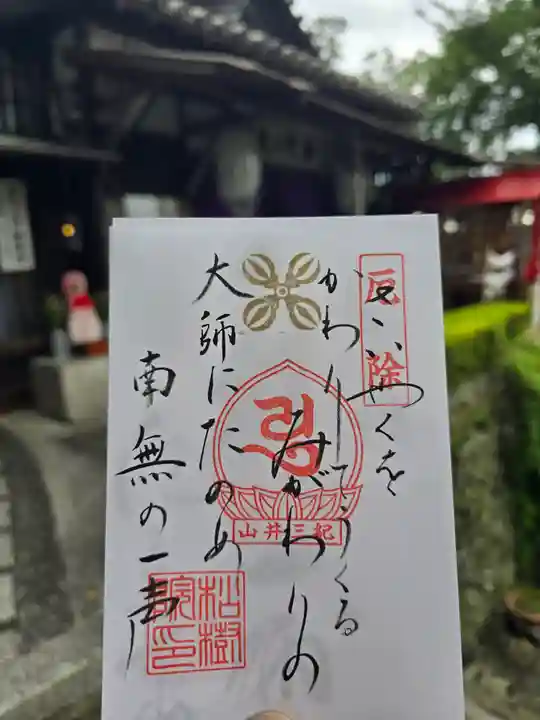 厄除
やくを
かわりてうくる
みがわりの
大師にたのめ
南無の一声
山井三紀
松樹院印